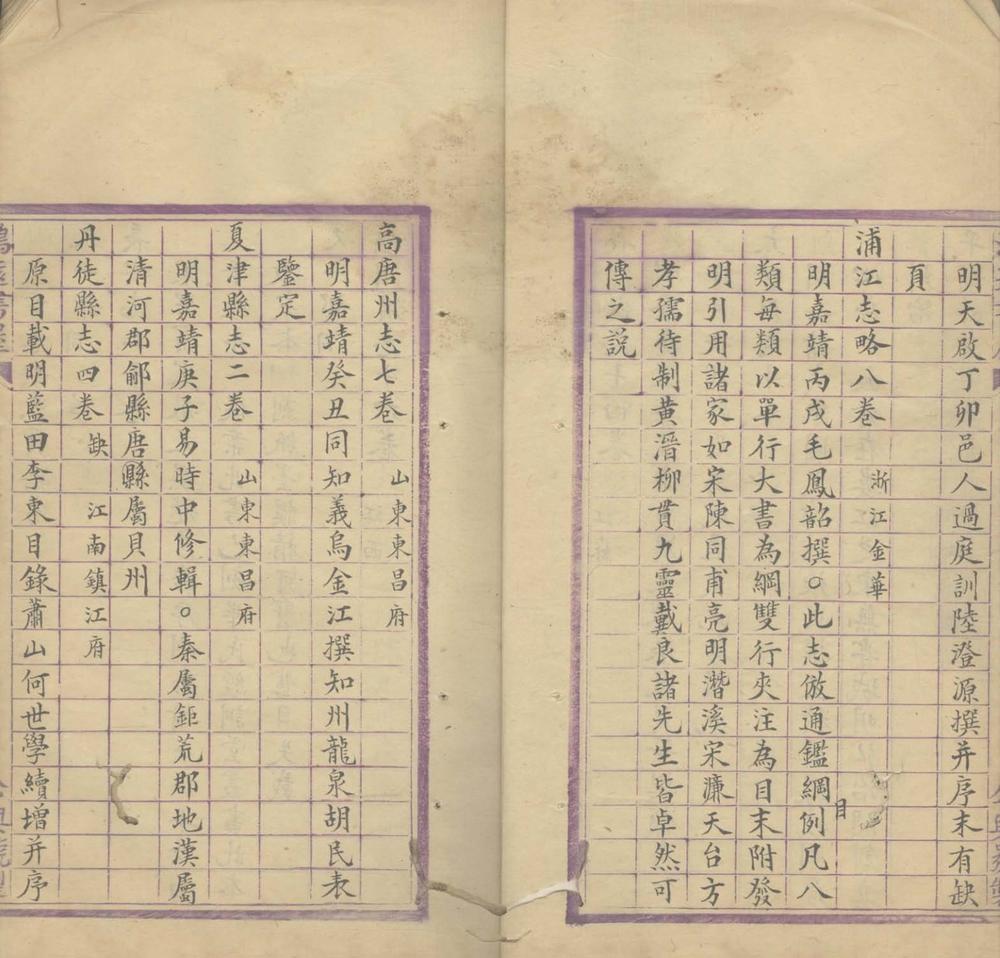 明天啟丁卯邑人過庭訓陸澄源撰并序末有缺
頁
浦江志略八卷 浙江金華
明嘉靖丙戌毛鳳韶撰○此志倣通鑑綱目例凡八
類每類以單行大書為綱雙行夾注為目末附發
明引用諸家如宋陳同甫亮明潛溪宋濂天台方
孝孺待制黃溍柳貫九靈戴良諸先生皆卓然可
傳之說
高唐州志七卷 山東東昌府
明嘉靖癸丑同知義烏金江撰知州龍泉胡民表
鑒定
夏津縣志二卷 山東東昌府
明嘉靖庚子易時中修輯○秦屬鉅荒郡地漢屬
清河郡鄃縣唐縣屬貝州
丹徒縣志四卷 缺 江南鎮江府
原目載明藍田李東目錄蕭山何世學續增并序